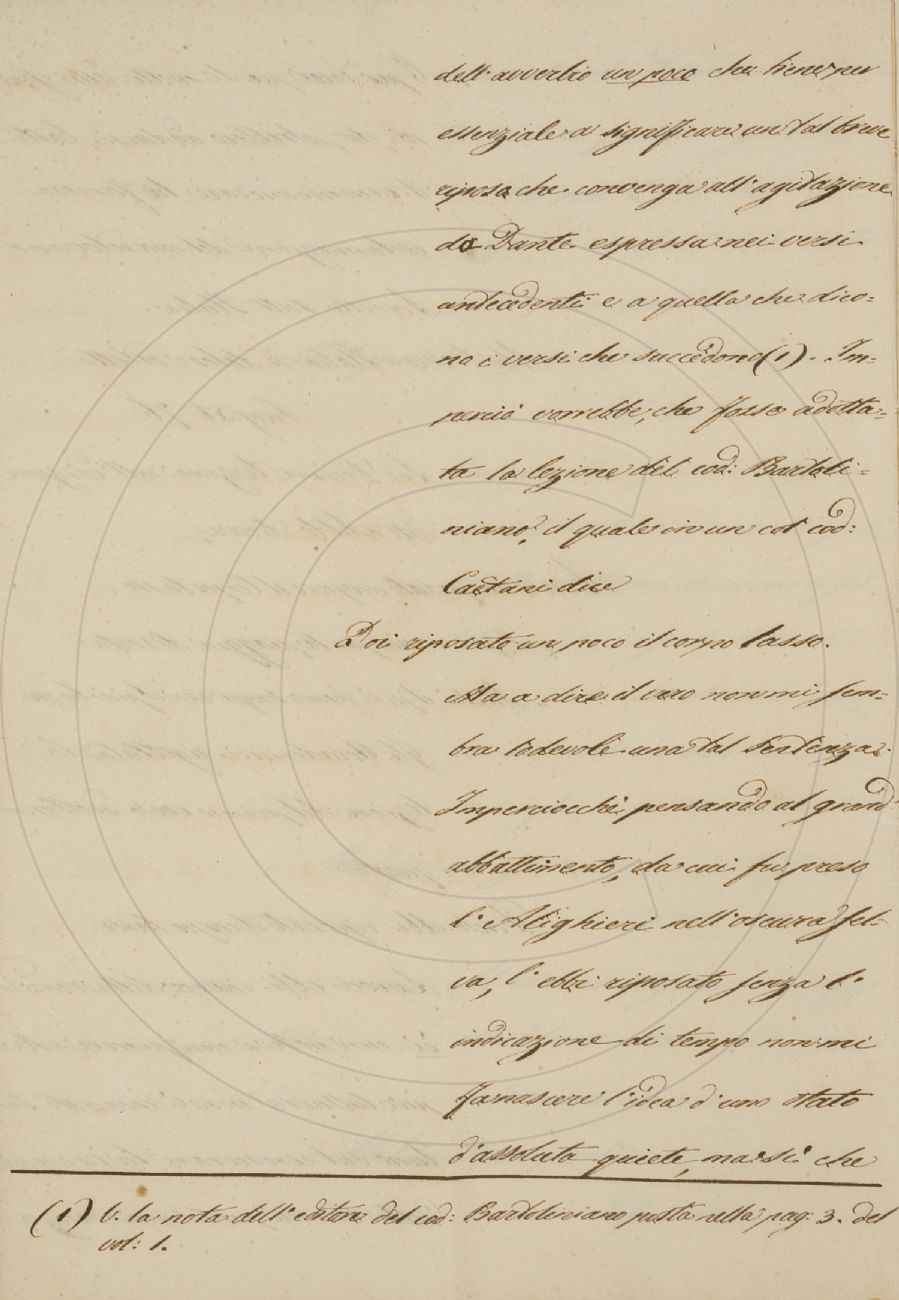 dell'avverbio un poco che tiene per
essenziale a significare un tal breve
riposo che convenga all'agitazione
da Dante espressa nei versi
antecedenti e a quella che dico=
no i versi che succedono (1). Im=
perciò vorrebbe, che fosse adotta=
ta la lezione del cod: Bartoli=
niano, il quale in un col cod:
Caetani dice
Poi riposato un poco il corpo lasso.
Ma a dire il vero non mi sem=
bra lodevole una tal sentenza.
Imperciocchè pensando al grand'
abbattimento, da cui fu preso
l'Alighieri nell'oscura sel-
va, l'ebbi riposato senza l'
indicazione di tempo non mi
fa nascere l'idea d'uno stato
d'assoluta quiete, ma sì che
(1) V. la nota dell'editore del cod: Bartoliniano posta nella pag: 3. del
vol: 1.